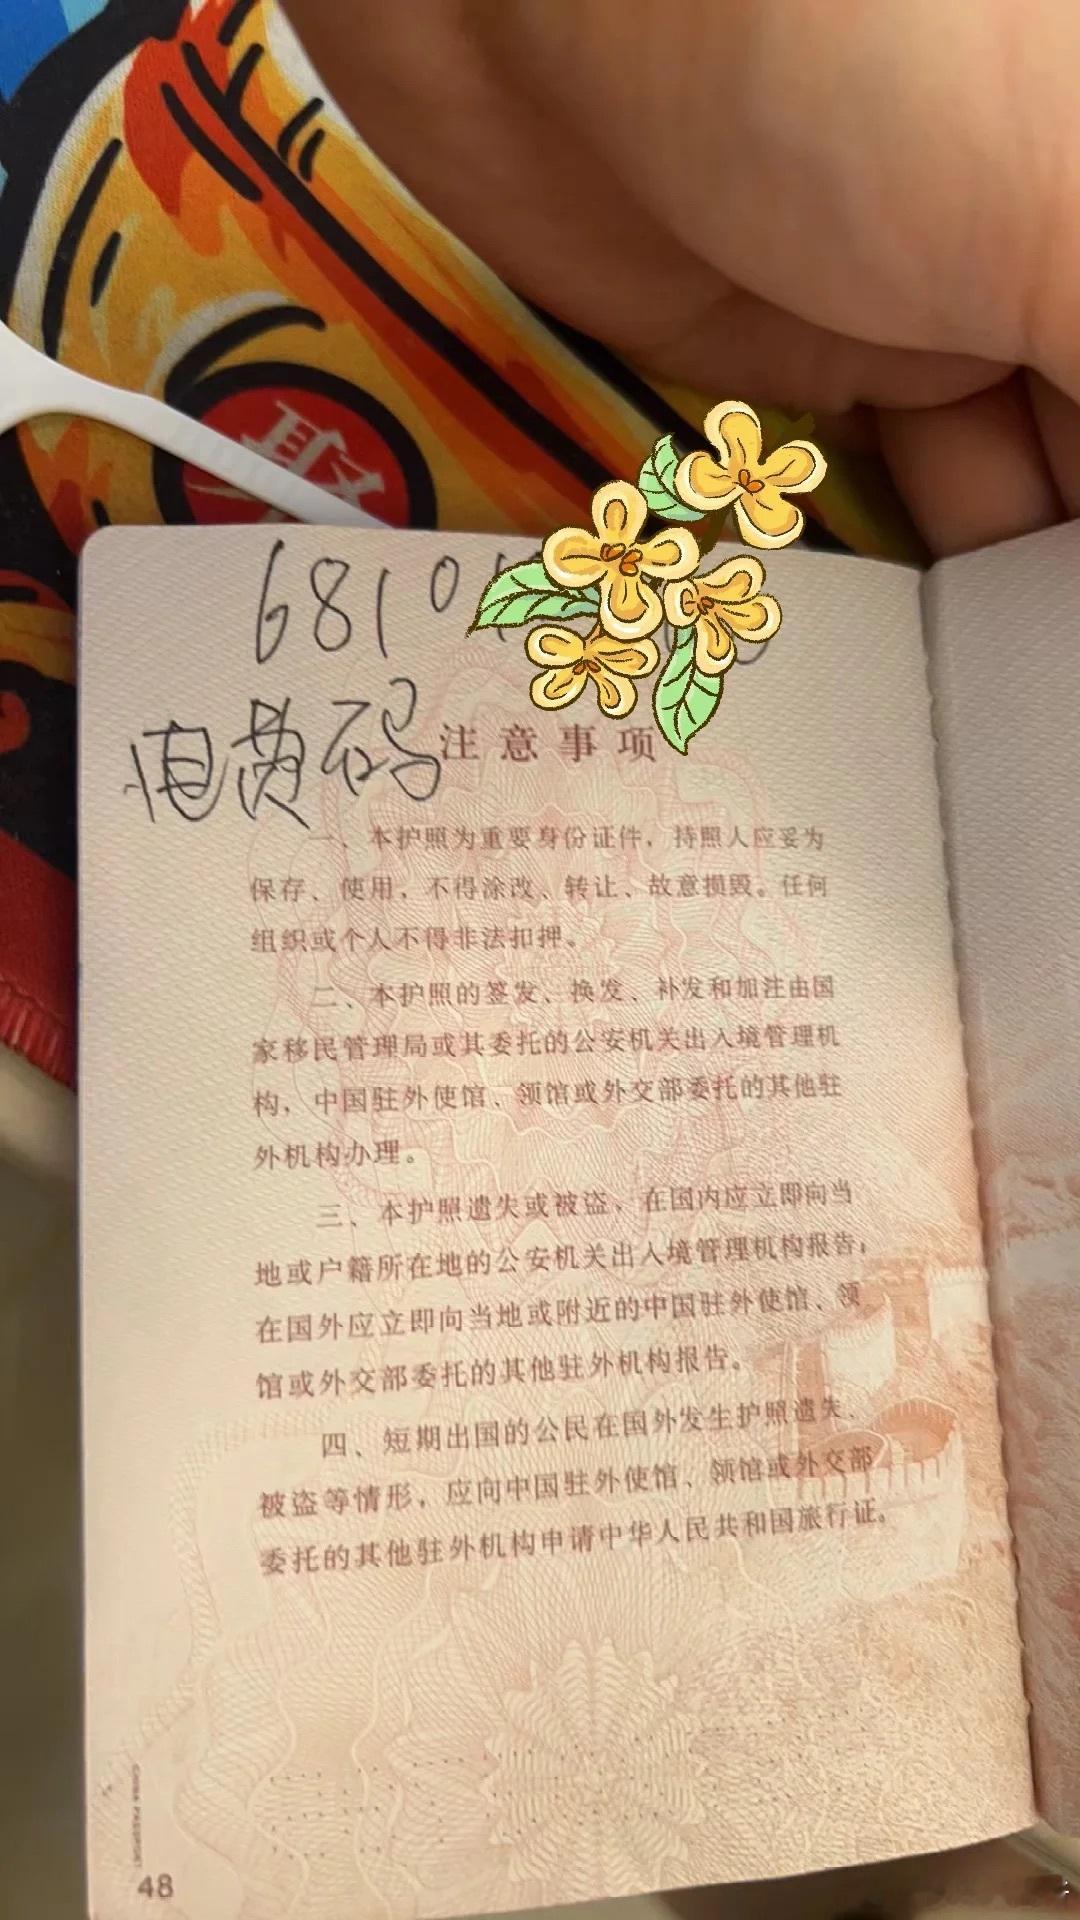 6810
电费码
注意事项
一、本护照为重要身份证件，持照人应妥为
保存、使用，不得涂改、转让、故意损毁。任何
组织或个人不得非法扣押。
二、本护照的签发、换发、补发和加注由国
家移民管理局或其委托的公安机关出入境管理机
构，中国驻外使馆、领馆或外交部委托的其他驻
外机构办理。
三、本护照遗失或被盗，在国内应立即向当
地或户籍所在地的公安机关出入境管理机构报告；
在国外应立即向当地或附近的中国驻外使馆、领
馆或外交部委托的其他驻外机构报告。
四、短期出国的公民在国外发生护照遗失、
被盗等情形，应向中国驻外使馆、领馆或外交部
委托的其他驻外机构申请中华人民共和国旅行证。
CHINA PASSPORT
48